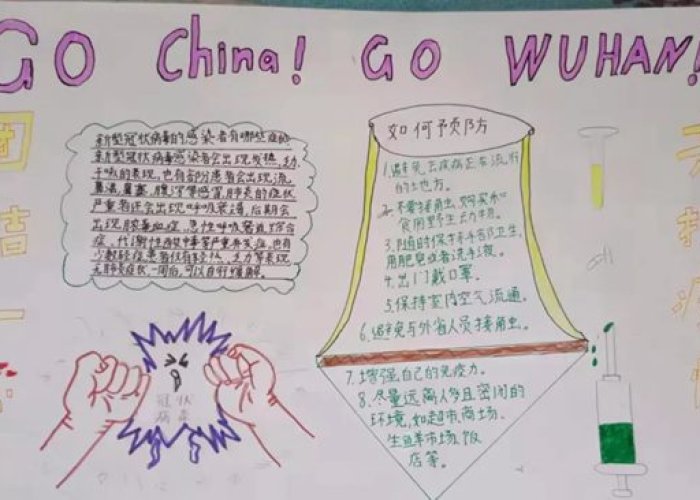 GO China! GO WUHAN!
团
结
一
新型冠状病毒的感染者有哪些症状
新型冠状病毒感染者会出现发热、乏力
干咳的表现,也有部分患者会出现流
鼻涕、鼻塞、腹泻等感冒、肺炎的症状
严重者还会出现呼吸衰竭,后期会
出现脓毒血症、急性呼吸窘迫综合
症、代谢性酸中毒等严重并发症,也有
少数轻症患者仅有轻热、乏力等表现
无肺炎症状,一周后,可以自行缓解。
冠状
病毒
如何预防
1.避免去疾病正在流行
的地方。
2.不要接触、购买和
食用野生动物。
3.随时保持手部卫生,
用肥皂或者洗手液。
4.出门戴口罩。
5.保持室内空气流通。
6.避免与外省人员接触。
7.增强自己的免疫力。
8.尽量远离人多且密闭的
环境,如超市、商场、
生鲜市场、饭
店等。
抗